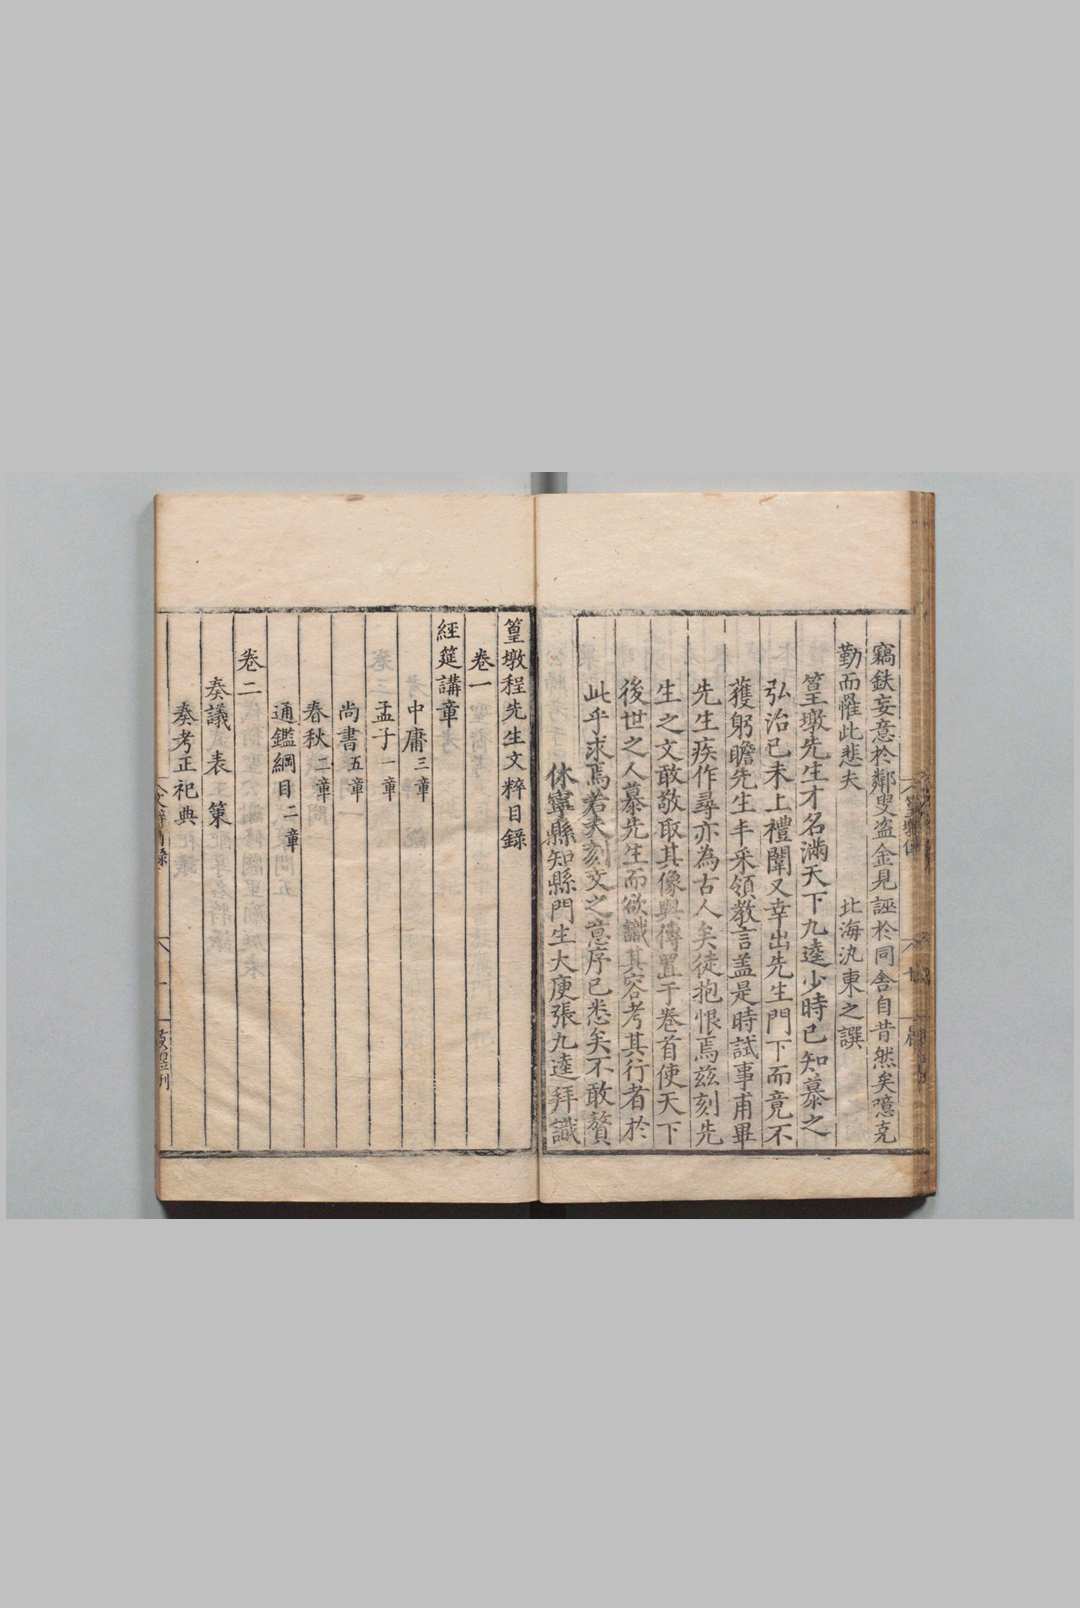 竊鈇妄意於鄰叟盗金見誣於同舍自昔然矣噫克
勤而罹此悲夫　　　　北海氿東之譔
篁墩先生才名滿天下九逵少時已知慕之
弘治己未上禮闈又幸出先生門下而竟不
獲躬瞻先生丰采領教言盖是時試事甫畢
先生疾作尋亦為古人矣徒抱恨焉兹刻先
生之文敢敬取其像與傳置于卷首使天下
後世之人慕先生而欲識其容考其行者於
此乎求焉若夫刻文之意序已悉矣不敢贅
休寧縣知縣門生大庾張九逵拜識
篁墩程先生文粹目錄
卷一
經筵講章
中庸三章
孟子一章
尚書五章
春秋二章
通鑑綱目二章
卷二
奏議　表　策
奏考正祀典